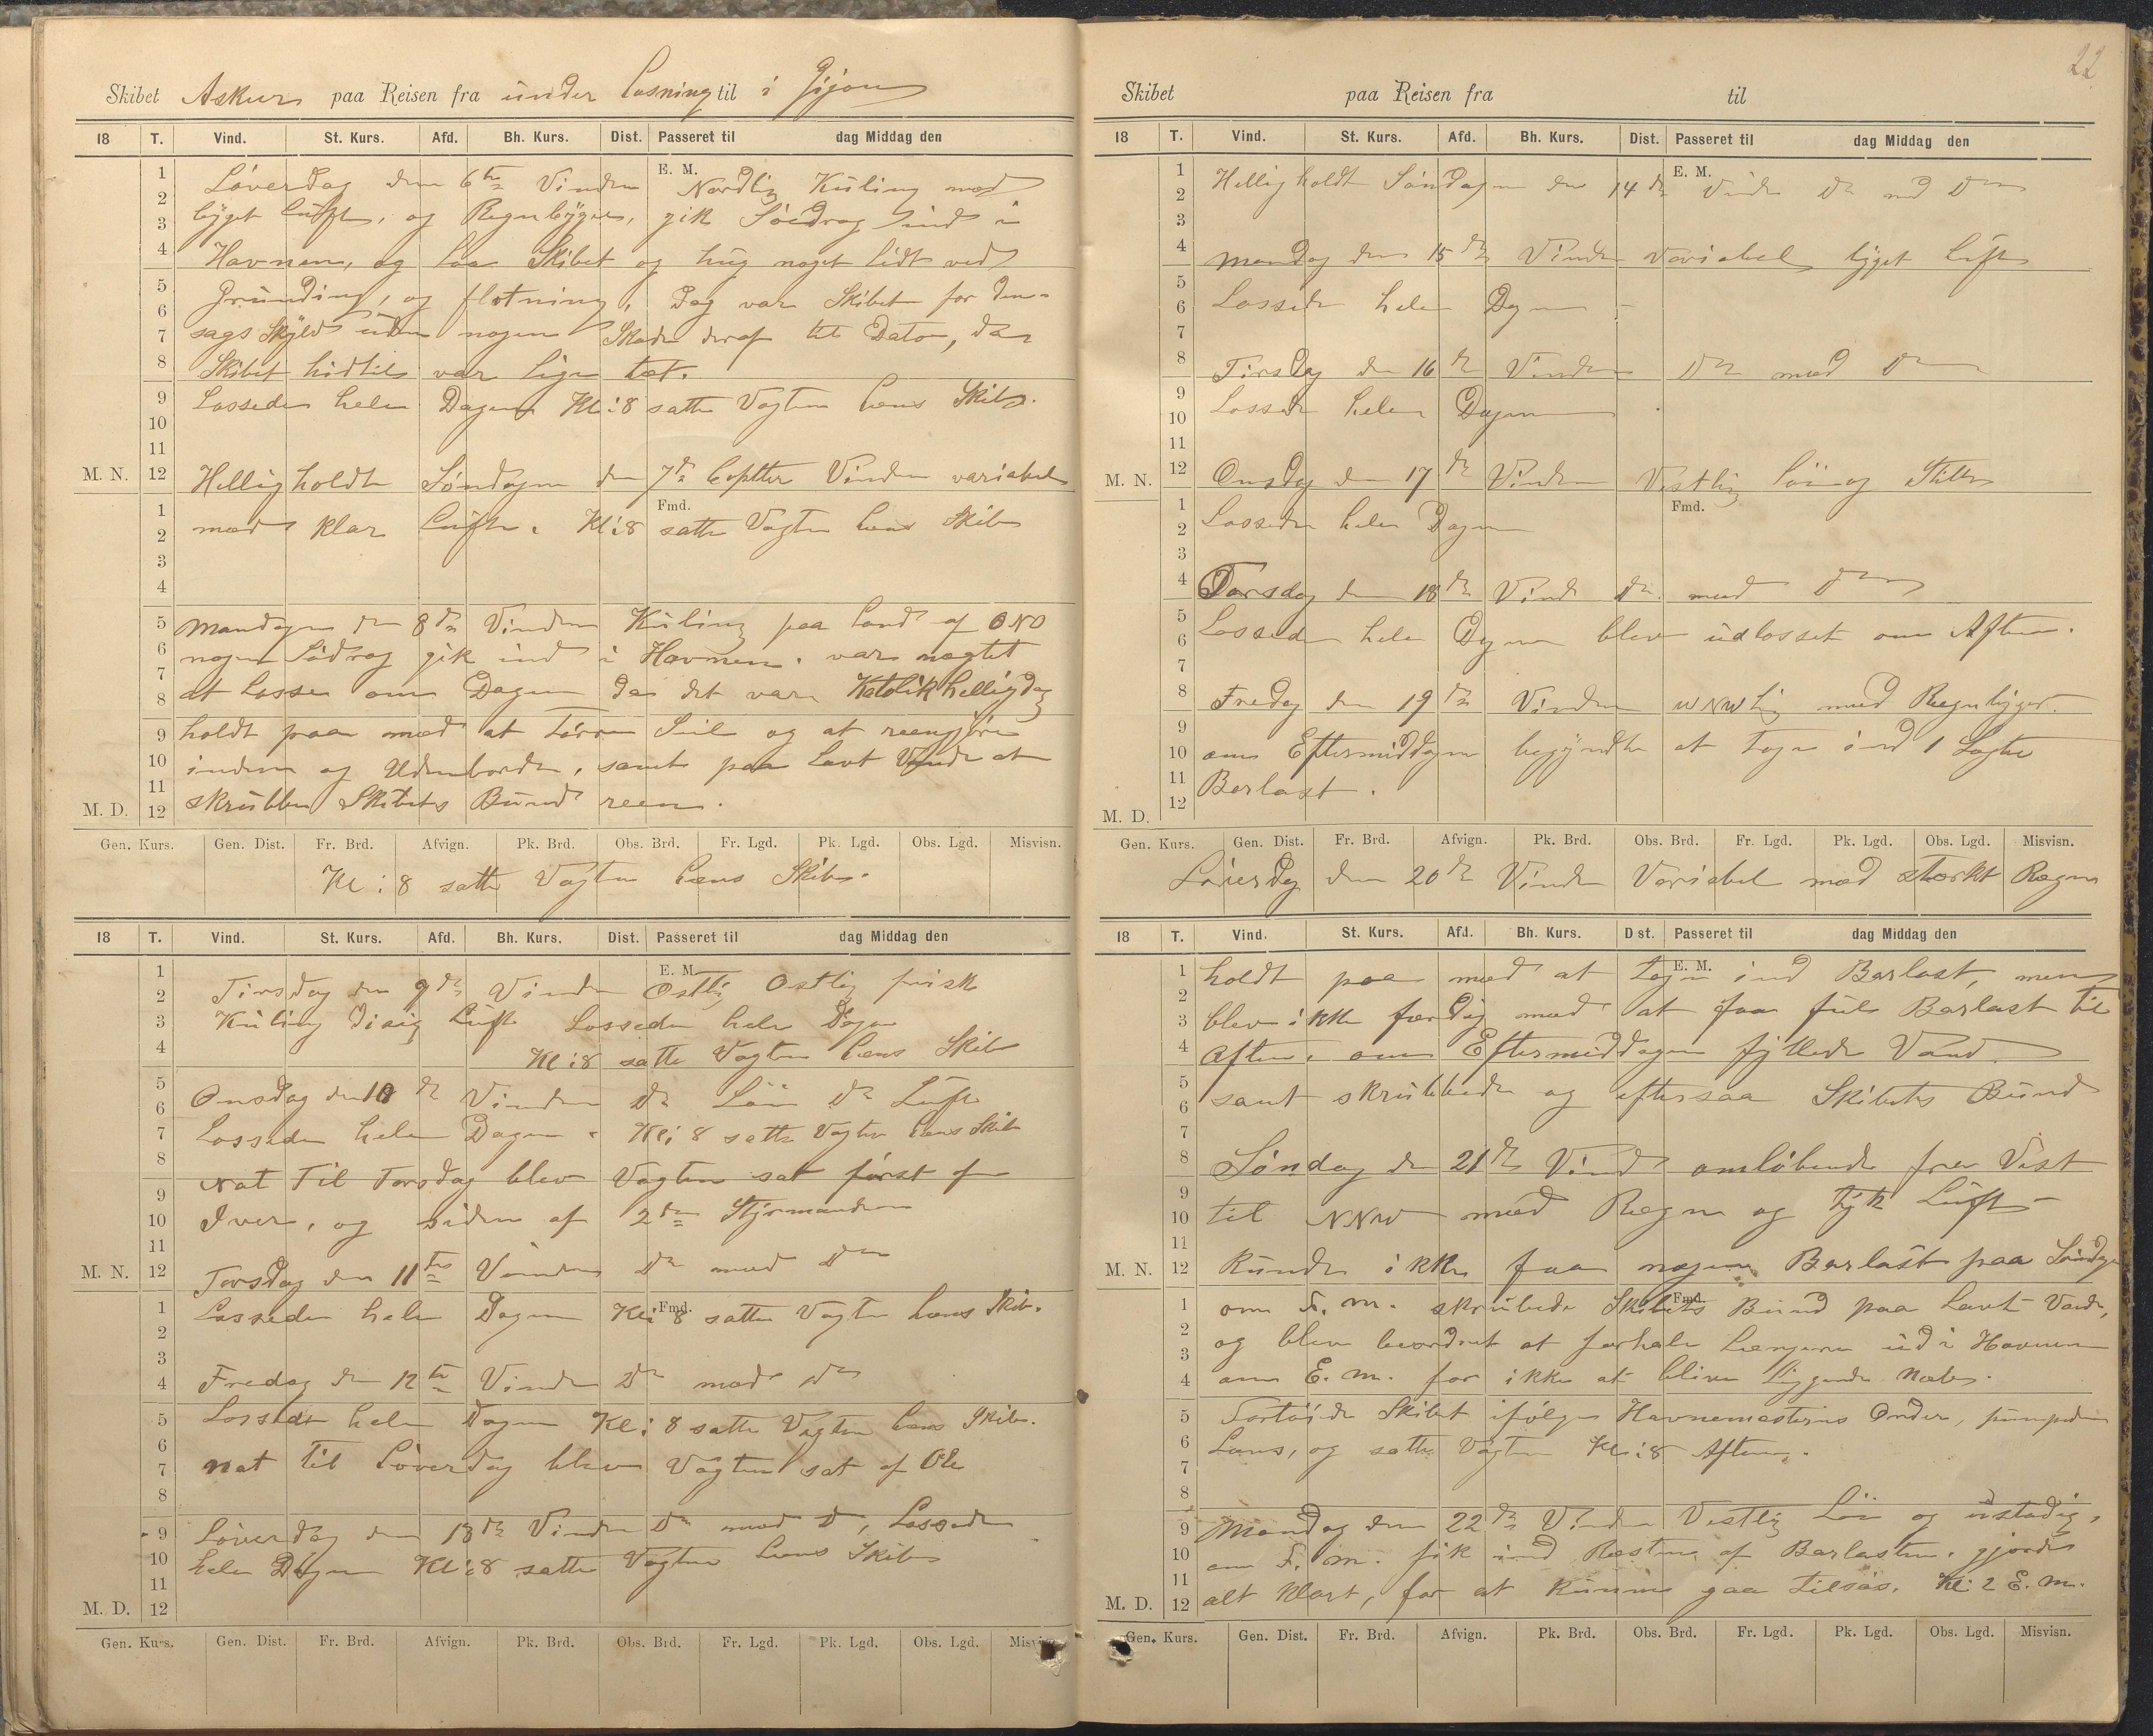 Skibet Askur paa Reisen fra under Losning til i Gijon
18 T. Vind. St. Kurs. Afd. Bh. Kurs. Dist. Passeret til dag Middag den
E. M.
Löverdag den 6te Vinden Nordlig Kuling med
byget Luft, og Regnbyger, gik Södrag ind i
Havnen, og laa Skibet og hug noget lidt ved
Grunding, og flotning, Dog var Skibet for den-
sags Skyld uden nogen Skade deraf til Dato, da
Skibet hidtil var lige tæt.
Lossede hele Dagen Kl: 8 satte Vagten Læns Skib.
M. N.
Helligholdt Söndagen den 7de Septbr Vinden variabel
Fmd.
med klar Luft. Kl: 8 satte Vagten Læns Skib
Mandagen den 8de Vinden Kuling paa Land af ONO
nogen Södrag gik ind i Havnen. var nægtet
at Losse om Dagen da det var Katolik helligdag
holdt paa med at Törre Seil og at reengjöre
inden og Udenbords, samt paa Lavt Vande at
M. D.
skrubbe Skibets Bund reen.
Gen. Kurs. Gen. Dist. Fr. Brd. Afvign. Pk. Brd. Obs. Brd. Fr. Lgd. Pk. Lgd. Obs. Lgd. Misvisn.
Kl: 8 satte Vagten Læns Skib.
18 T. Vind. St. Kurs. Afd. Bh. Kurs. Dist. Passeret til dag Middag den
E. M.
Tirsdag den 9de Vinden Ostlig Ostlig frisk
Kuling Disig Luft Lossede hele Dagen
Kl: 8 satte Vagten Læns Skib
Onsdag den 10de Vinden Do Löi Do Luft
Lossede hele Dagen. Kl: 8 satte Vagten Læns Skib
Nat Til Torsdag blev Vagten sat först af
Iver, og siden af 2den Styrmanden
M. N.
Torsdag den 11te Vinden Do med Do
Fmd.
Lossede hele Dagen Kl: 8 satte Vagten Læns Skib.
Fredag den 12te Vinden Do med Do
Lossede hele Dagen Kl: 8 satte Vagten Læns Skib.
nat til Löverdag blev Vagten sat af Ole
Löverdag den 13de Vinden Do med Do, Lossede
hele Dagen Kl: 8 satte Vagten Læns Skib
M. D.
Gen. Kurs. Gen. Dist. Fr. Brd. Afvign. Pk. Brd. Obs. Brd. Fr. Lgd. Pk. Lgd. Obs. Lgd. Misvisn.
22
Skibet paa Reisen fra til
18 T. Vind. St. Kurs. Afd. Bh. Kurs. Dist. Passeret til dag Middag den
E. M.
Helligholdt Söndagen den 14de Vinden Do med Do
Mandag den 15de Vinden Variabel byget Luft
Lossede hele Dagen
Tirsdag den 16de Vinden Do med Do
Lossede hele Dagen
M. N.
Onsdag den 17de Vinden Vestlig Löi og Stille
Fmd.
Lossede hele Dagen
Torsdag den 18de Vind Do med Do
Lossede hele Dagen blev udlosset om Aften.
Fredag den 19de Vinden WNWlig med Regnbyger.
om Eftermiddagen begyndte at Tage ind 1 Lægter
Barlast.
M. D.
Gen. Kurs. Gen. Dist. Fr. Brd. Afvign. Pk. Brd. Obs. Brd. Fr. Lgd. Pk. Lgd. Obs. Lgd. Misvisn.
Löverdag den 20de Vinden Variabel med stærkt Regn
18 T. Vind. St. Kurs. Afd. Bh. Kurs. Dist. Passeret til dag Middag den
E. M.
holdt paa med at tagen ind Barlast, men
blev ikke færdig med at faa fuld Barlast til
Aften. om Eftermiddagen fyllede Vand
samt skrubbede og eftersaa Skibets Bund
Söndag den 21de Vind omlöbende fra Vest
til NNW med Regn og tyk Luft
M. N.
Kunde ikke faa nogen Barlast paa Söndag
Fmd.
om F. m. skrubede Skibets Bund paa Lavt Vande,
og blev beordret at forhale Længere ud i Havnen
om E. m. for ikke at blive liggende
Fortöiede Skibet ifölge Havnemesterens Order, pumpede
Læns, og satte Vagten Kl: 8 Aften.
Mandag den 22de Vinden Vestlig Löi og ustadig,
om F. m. fik ind Resten af Barlasten. gjorde
alt Klart, for at Kunne gaa tilsös. Kl: 2 E. m.
M. D.
Gen. Kurs. Gen. Dist. Fr. Brd. Afvign. Pk. Brd. Obs. Brd. Fr. Lgd. Pk. Lgd. Obs. Lgd. Misvisn.